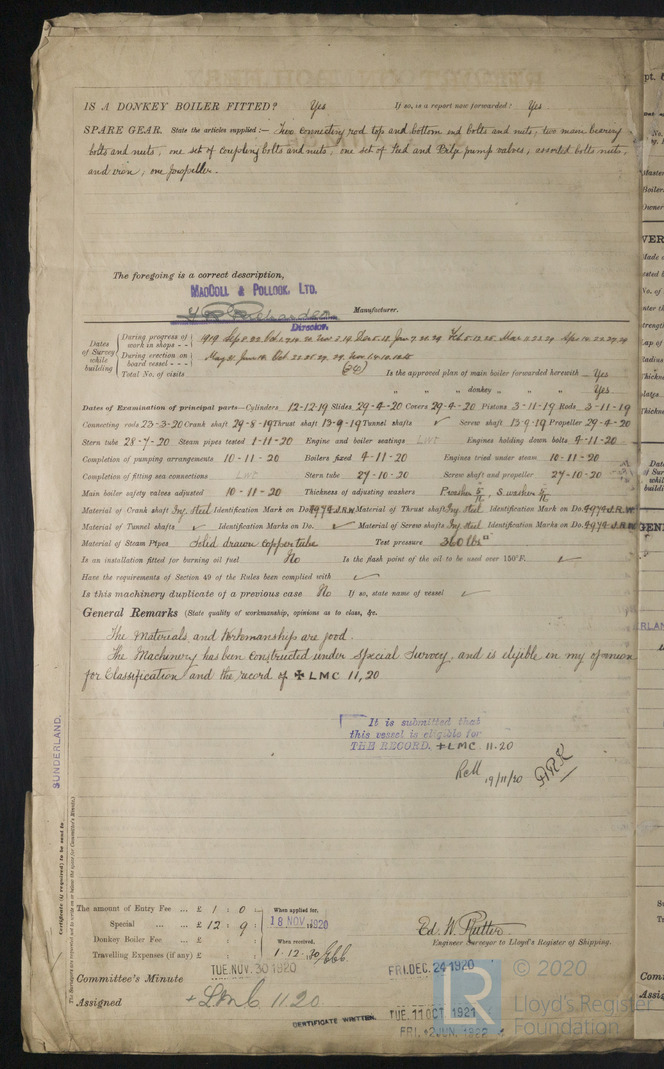 IS A DONKEY BOILER FITTED? Yes If so, is a report now forwarded? Yes
SPARE GEAR. State the articles supplied:— Two connecting rod top and bottom end bolts and nuts, two main bearing
bolts and nuts, one set of coupling bolts and nuts, one set of Feed and Bilge pump valves, assorted bolts nuts,
and iron, one propeller.
The foregoing is a correct description,
MACCOLL & POLLOCK, LTD.
Manufacturer.
Director.
Dates of Survey while building
During progress of work in shops - -
1919 Sep 8.22
During erection on board vessel - - -
Total No. of visits (24)
Is the approved plan of main boiler forwarded herewith Yes
" " " donkey " " " Yes
Dates of Examination of principal parts—Cylinders 12-12-19 Slides 29-4-20 Covers 29-4-20 Pistons 3-11-19 Rods 3-11-19
Connecting rods 23-3-20 Crank shaft 29-8-19 Thrust shaft 13-9-19 Tunnel shafts ✓ Screw shaft 13-9-19 Propeller 29-4-20
Stern tube 28-7-20 Steam pipes tested 1-11-20 Engine and boiler seatings LWT Engines holding down bolts 4-11-20
Completion of pumping arrangements 10-11-20 Boilers fixed 4-11-20 Engines tried under steam 10-11-20
Completion of fitting sea connections LWT Stern tube 27-10-20 Screw shaft and propeller 27-10-20
Main boiler safety valves adjusted 10-11-20 Thickness of adjusting washers P washer S. washer
Material of Crank shaft Ing. steel Identification Mark on Do. 4974 J.R.W Material of Thrust shaft Ing. steel Identification Mark on Do. 4974 J.R.W
Material of Tunnel shafts ✓ Identification Marks on Do. ✓ Material of Screw shafts Ing. steel Identification Marks on Do. 4974 J.R.W
Material of Steam Pipes Solid drawn copper tube Test pressure 360 lbs □"
Is an installation fitted for burning oil fuel No Is the flash point of the oil to be used over 150°F. ✓
Have the requirements of Section 49 of the Rules been complied with ✓
Is this machinery duplicate of a previous case No If so, state name of vessel ✓
General Remarks (State quality of workmanship, opinions as to class, &c.
The Materials and Workmanship are good.
The Machinery has been constructed under Special Survey, and is eligible in my opinion
for Classification and the record of ✠ LMC 11,20
It is submitted that
this vessel is eligible for
THE RECORD. + LMC 11.20
19/11/20
SUNDERLAND.
Certificate (if required) to be sent to
The amount of Entry Fee ... £ 1 : 0 : When applied for,
Special ... ... £ 12 : 9 : 18 NOV 1920
Donkey Boiler Fee ... £ : : When received,
Travelling Expenses (if any) £ : : 1-12-20
Engineer Surveyor to Lloyd's Register of Shipping.
Committee's Minute TUE. NOV. 30 1920 FRI. DEC. 24 1920
Assigned + LMC 11 20
CERTIFICATE WRITTEN.
TUE. 11 OCT. 1921
FRI. 2 JUN. 1922
© 2020
Lloyd's Register
Foundation